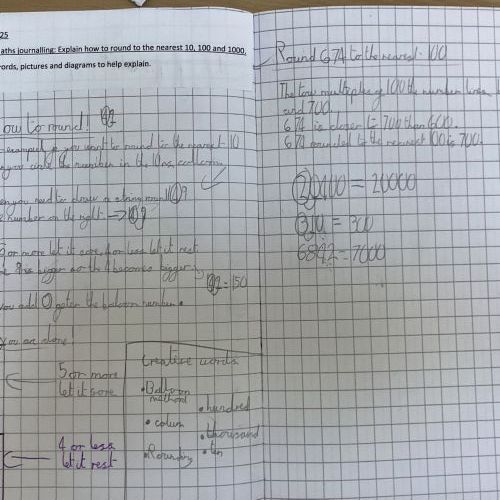 25
aths journalling: Explain how to round to the nearest 10, 100 and 1000,
ords, pictures and diagrams to help explain.
ow to round!
if you want to round to the nearest 10
you write the number in the 10s column
en you need to draw a string round
e number on the right
5 or more let it soar, 4 or less let it rest
bigger so the becomes bigger
= 150
you add 0 after the balloon number.
you are done!
5 or more
let it sore
4 or less
let it rest
Creative words
• Balloon
method
• colum
• Rounding
• hundred
• thousand
• ten
Round 674 to the nearest 100
The two multiples of 100 the number lines
and 700
674 is closer to 700 than 600.
674 rounded to the nearest 100 is 700.
20100 = 20000
310 = 300
6892 = 7000